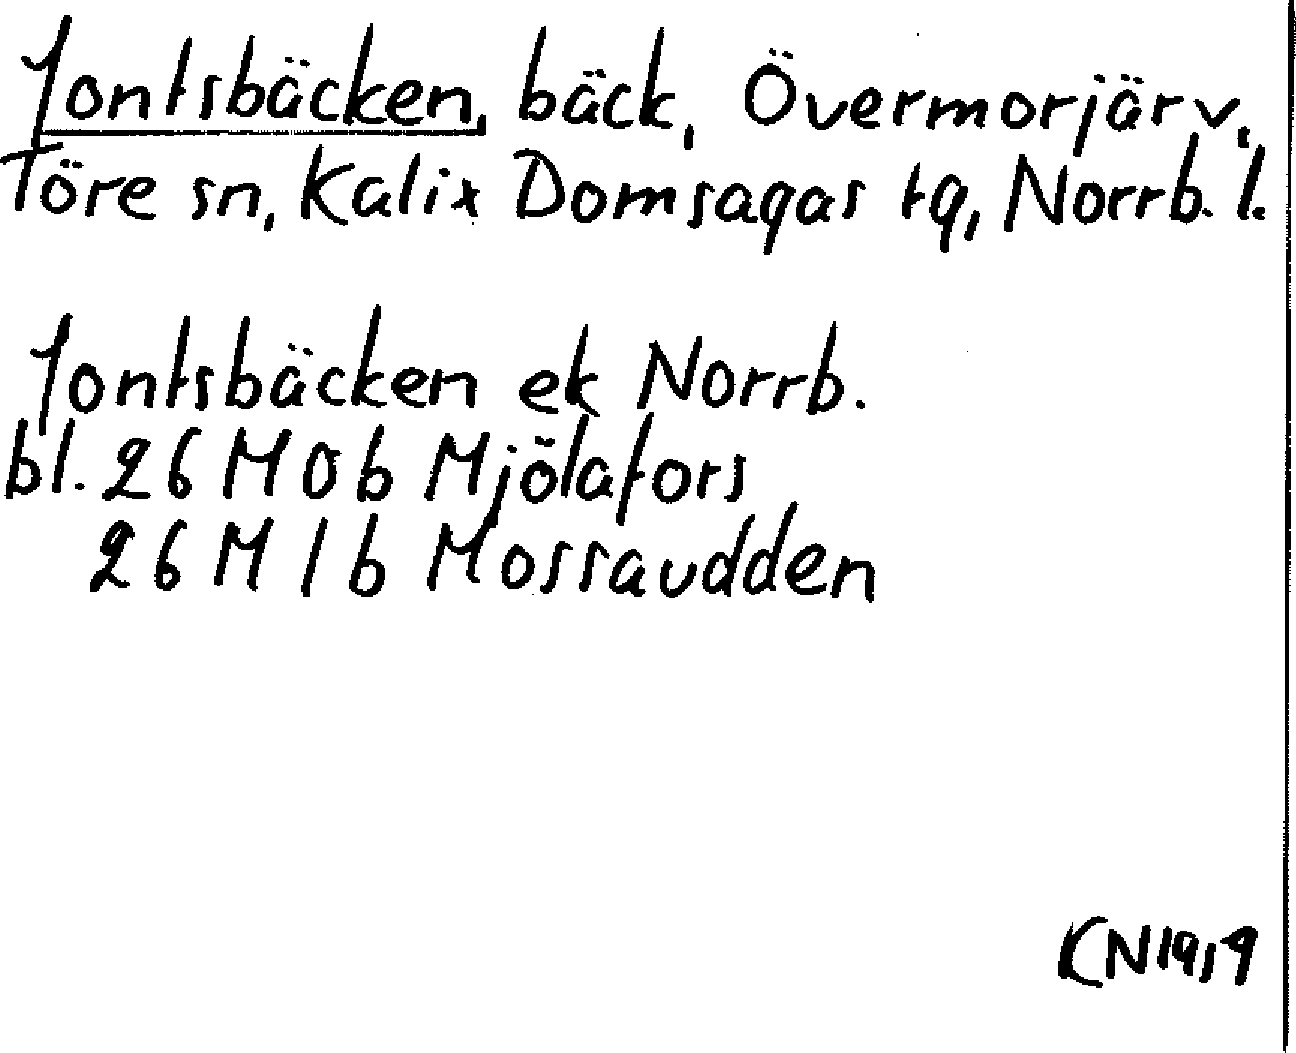 Jontsbäcken, bäck, Övermorjärv,
Töre sn, Kalix Domsagas tg, Norrb. l.
Jontsbäcken ek Norrb.
bl. 26 M 0 b Mjölafors
26 M 1 b Mossaudden